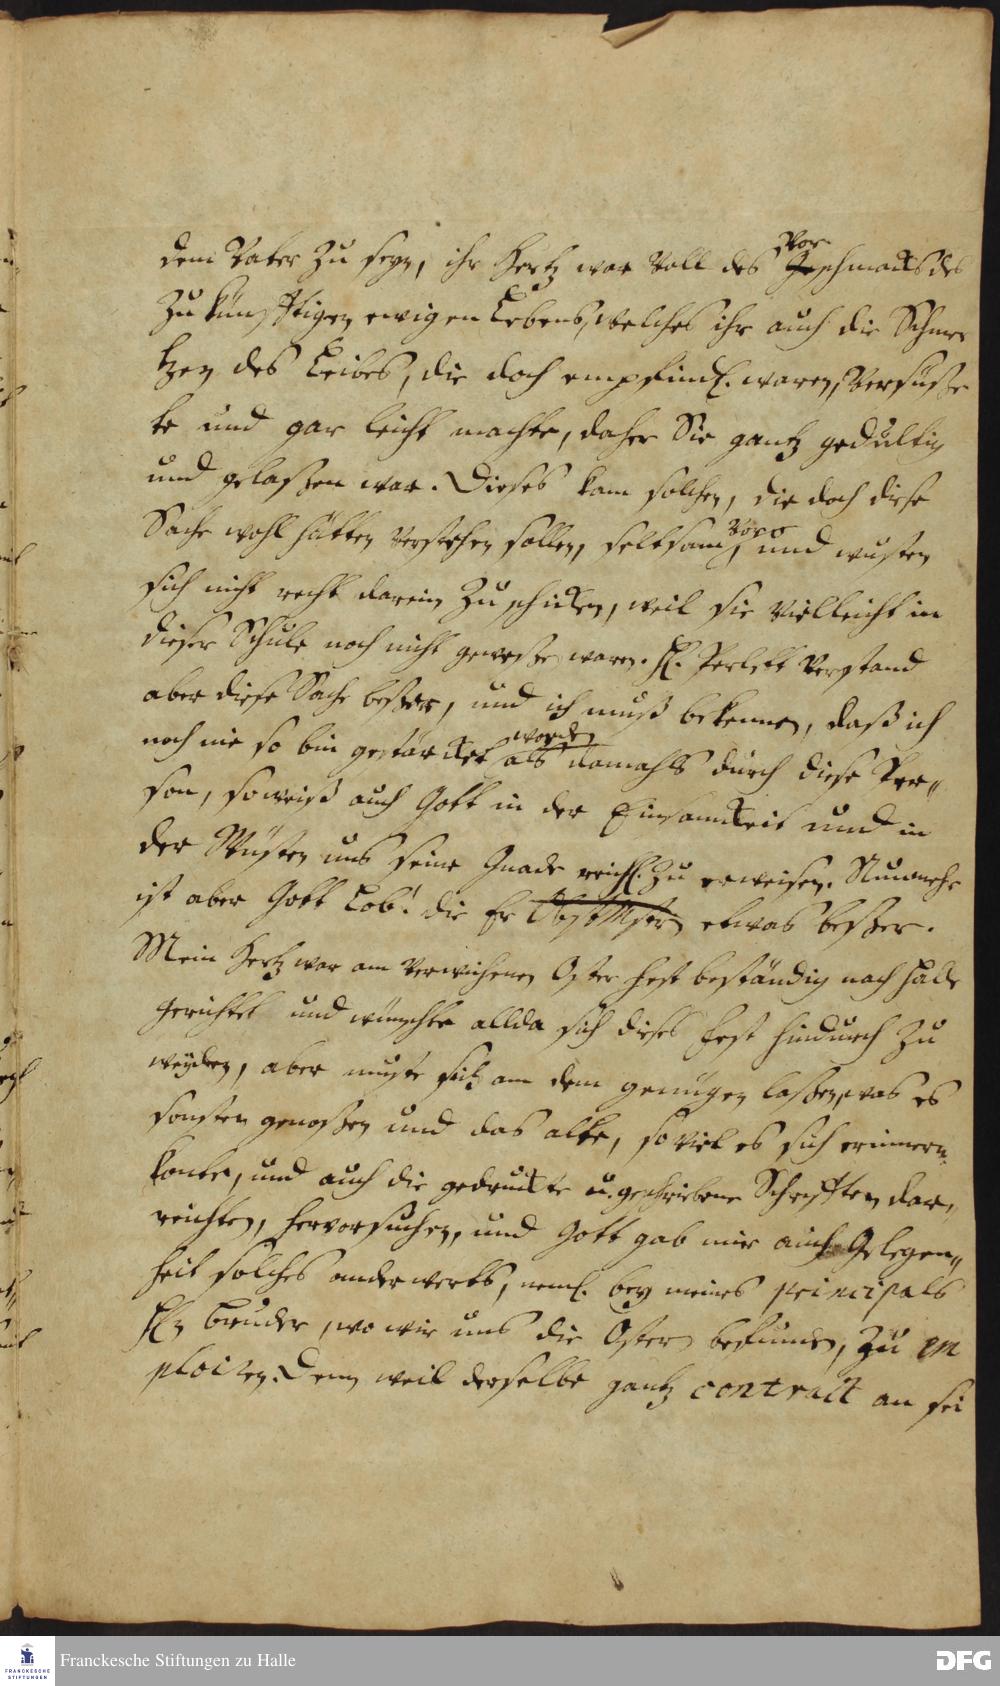 dem Vater zu seyn, ihr Hertz war voll des Vorgeschmacks des
zukünfftigen ewigen Lebens, welches ihr auch die Schmer
tzen des Leibes, die doch empfindl. waren, versüße
te und gar leicht machte, daher Sie gantz gedultig
und gelaßen war. Dieses kam solchen, die doch diese
Sache wohl hätten verstehen sollen, seltsam vor, und wusten
sich nicht recht darein zu schicken, weil sie vielleicht in
dieser Schule noch nicht geweßen waren. H. Perlett verstand
aber diese Sache beßer, und ich muß bekennen, daß ich
noch nie so bin gestärcket worden als damahls durch diese Per„
son, so weiß auch Gott in der Einsamkeit und in
der Wüsten uns seine Gnade reichl. zu erweisen. Nunmehr
ist aber Gott Lob! die Fr. etwas beßer.
Mein Hertz war am verwichenen Oster Fest beständig nach Halle
gerichtet und wünschte allda sich dieses Fest hindurch zu
weyden, aber muste sich an dem genügen laßen, was es
sonsten genoßen und das alte, so viel es sich erinnern
konte, und auch die gedruckte u. geschriebene Schrifften dar„
reichten, hervorsuchen, und Gott gab mir auch Gelegen„
heit solches anderwerts, neml. bey meines principals
Hn Bruder, wo wir uns die Ostern befunden, zu em
ploiren. Denn weil derselbe gantz contract an sei
Franckesche Stiftungen zu Halle
FRANCKESCHE
STIFTUNGEN
DFG